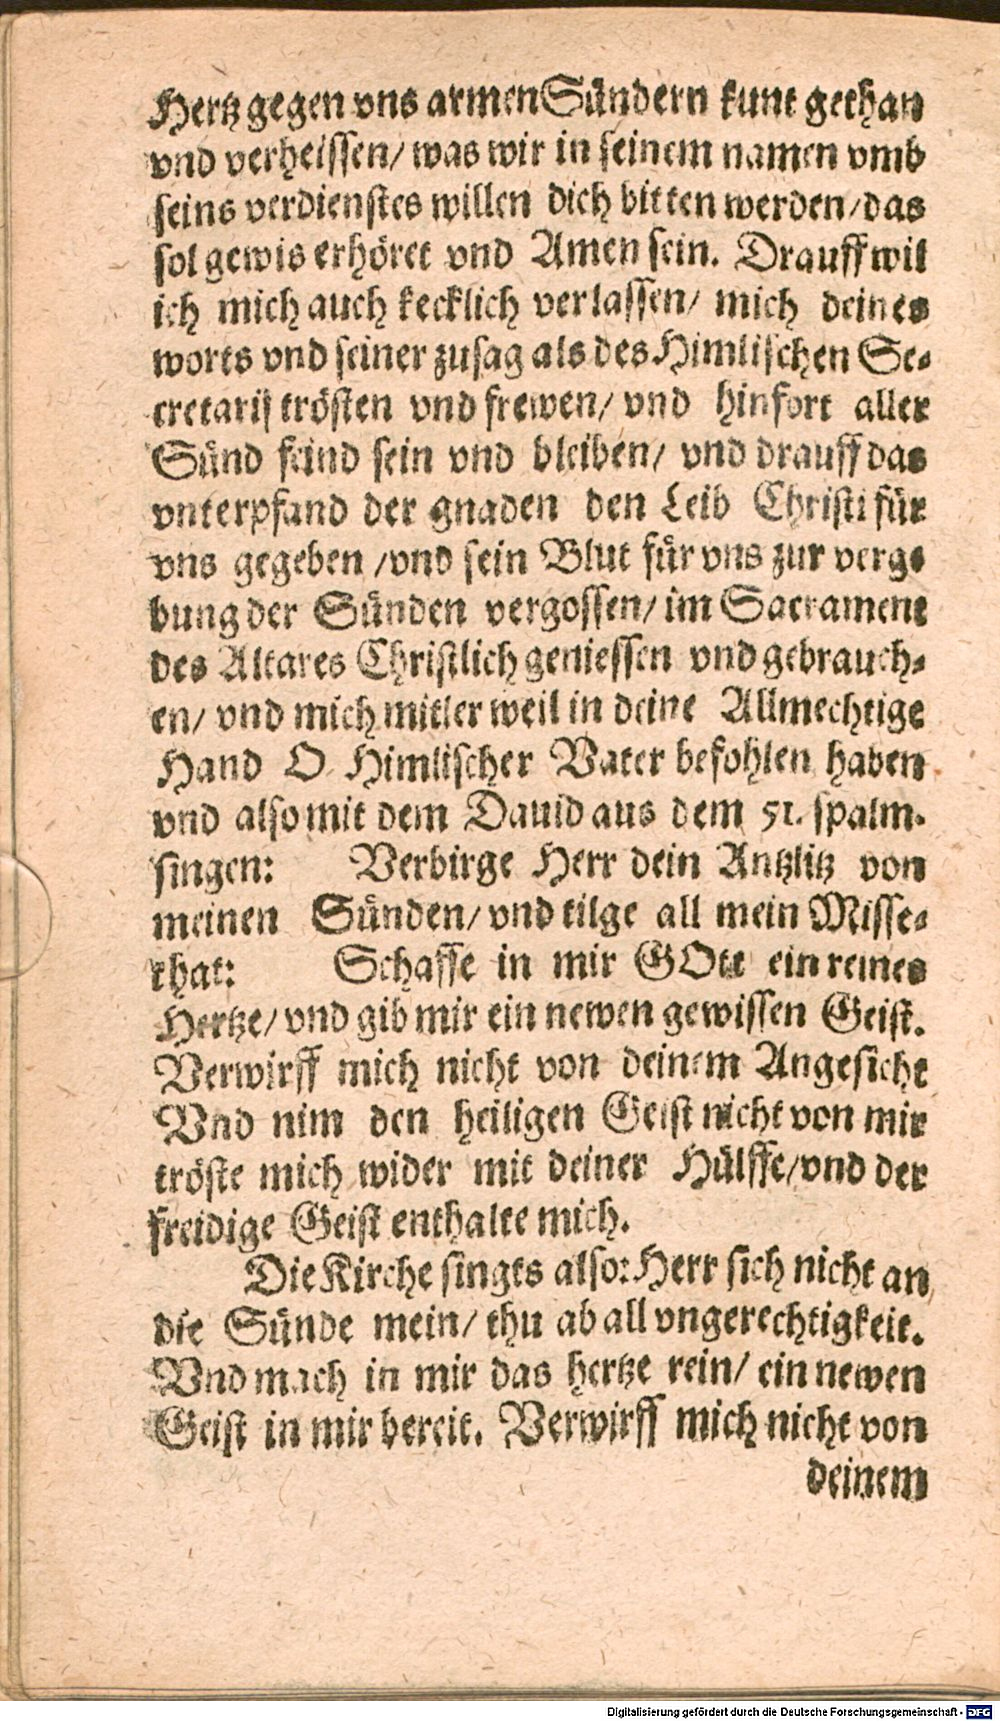 Hertz gegen vns armen Sündern kunt gethan
vnd verheissen/ was wir in seinem namen vmb
seins verdienstes willen dich bitten werden/das
sol gewis erhöret vnd Amen sein. Drauff wil
ich mich auch kecklich verlassen/ mich deines
worts vnd seiner zusag als des Himlischen Se-
cretarij trösten vnd frewen/ vnd hinfort aller
Sünd feind sein vnd bleiben/ vnd drauff das
vnterpfand der gnaden den Leib Christi für
vns gegeben /vnd sein Blut für vns zur verge
bung der Sünden vergossen/ im Sacrament
des Altares Christlich geniessen vnd gebrauch-
en/ vnd mich mitler weil in deine Allmechtige
Hand O Himlischer Vater befohlen haben
vnd also mit dem Dauid aus dem 51. spalm.
singen: Verbirge Herr dein Antzlitz von
meinen Sünden/ vnd tilge all mein Misse-
that: Schaffe in mir GOtt ein reines
Hertze/ vnd gib mir ein newen gewissen Geist.
Verwirff mich nicht von deinem Angesicht
Vnd nim den heiligen Geist nicht von mir
tröste mich wider mit deiner Hülffe/vnd der
freidige Geist enthalte mich.
Die Kirche singts also: Herr sich nicht an
die Sünde mein/ thu ab all vngerechtigkeit.
Vnd mach in mir das hertze rein/ ein newen
Geist in mir bereit. Verwirff mich nicht von
deinem
Digitalisierung gefördert durch die Deutsche Forschungsgemeinschaft - DFG